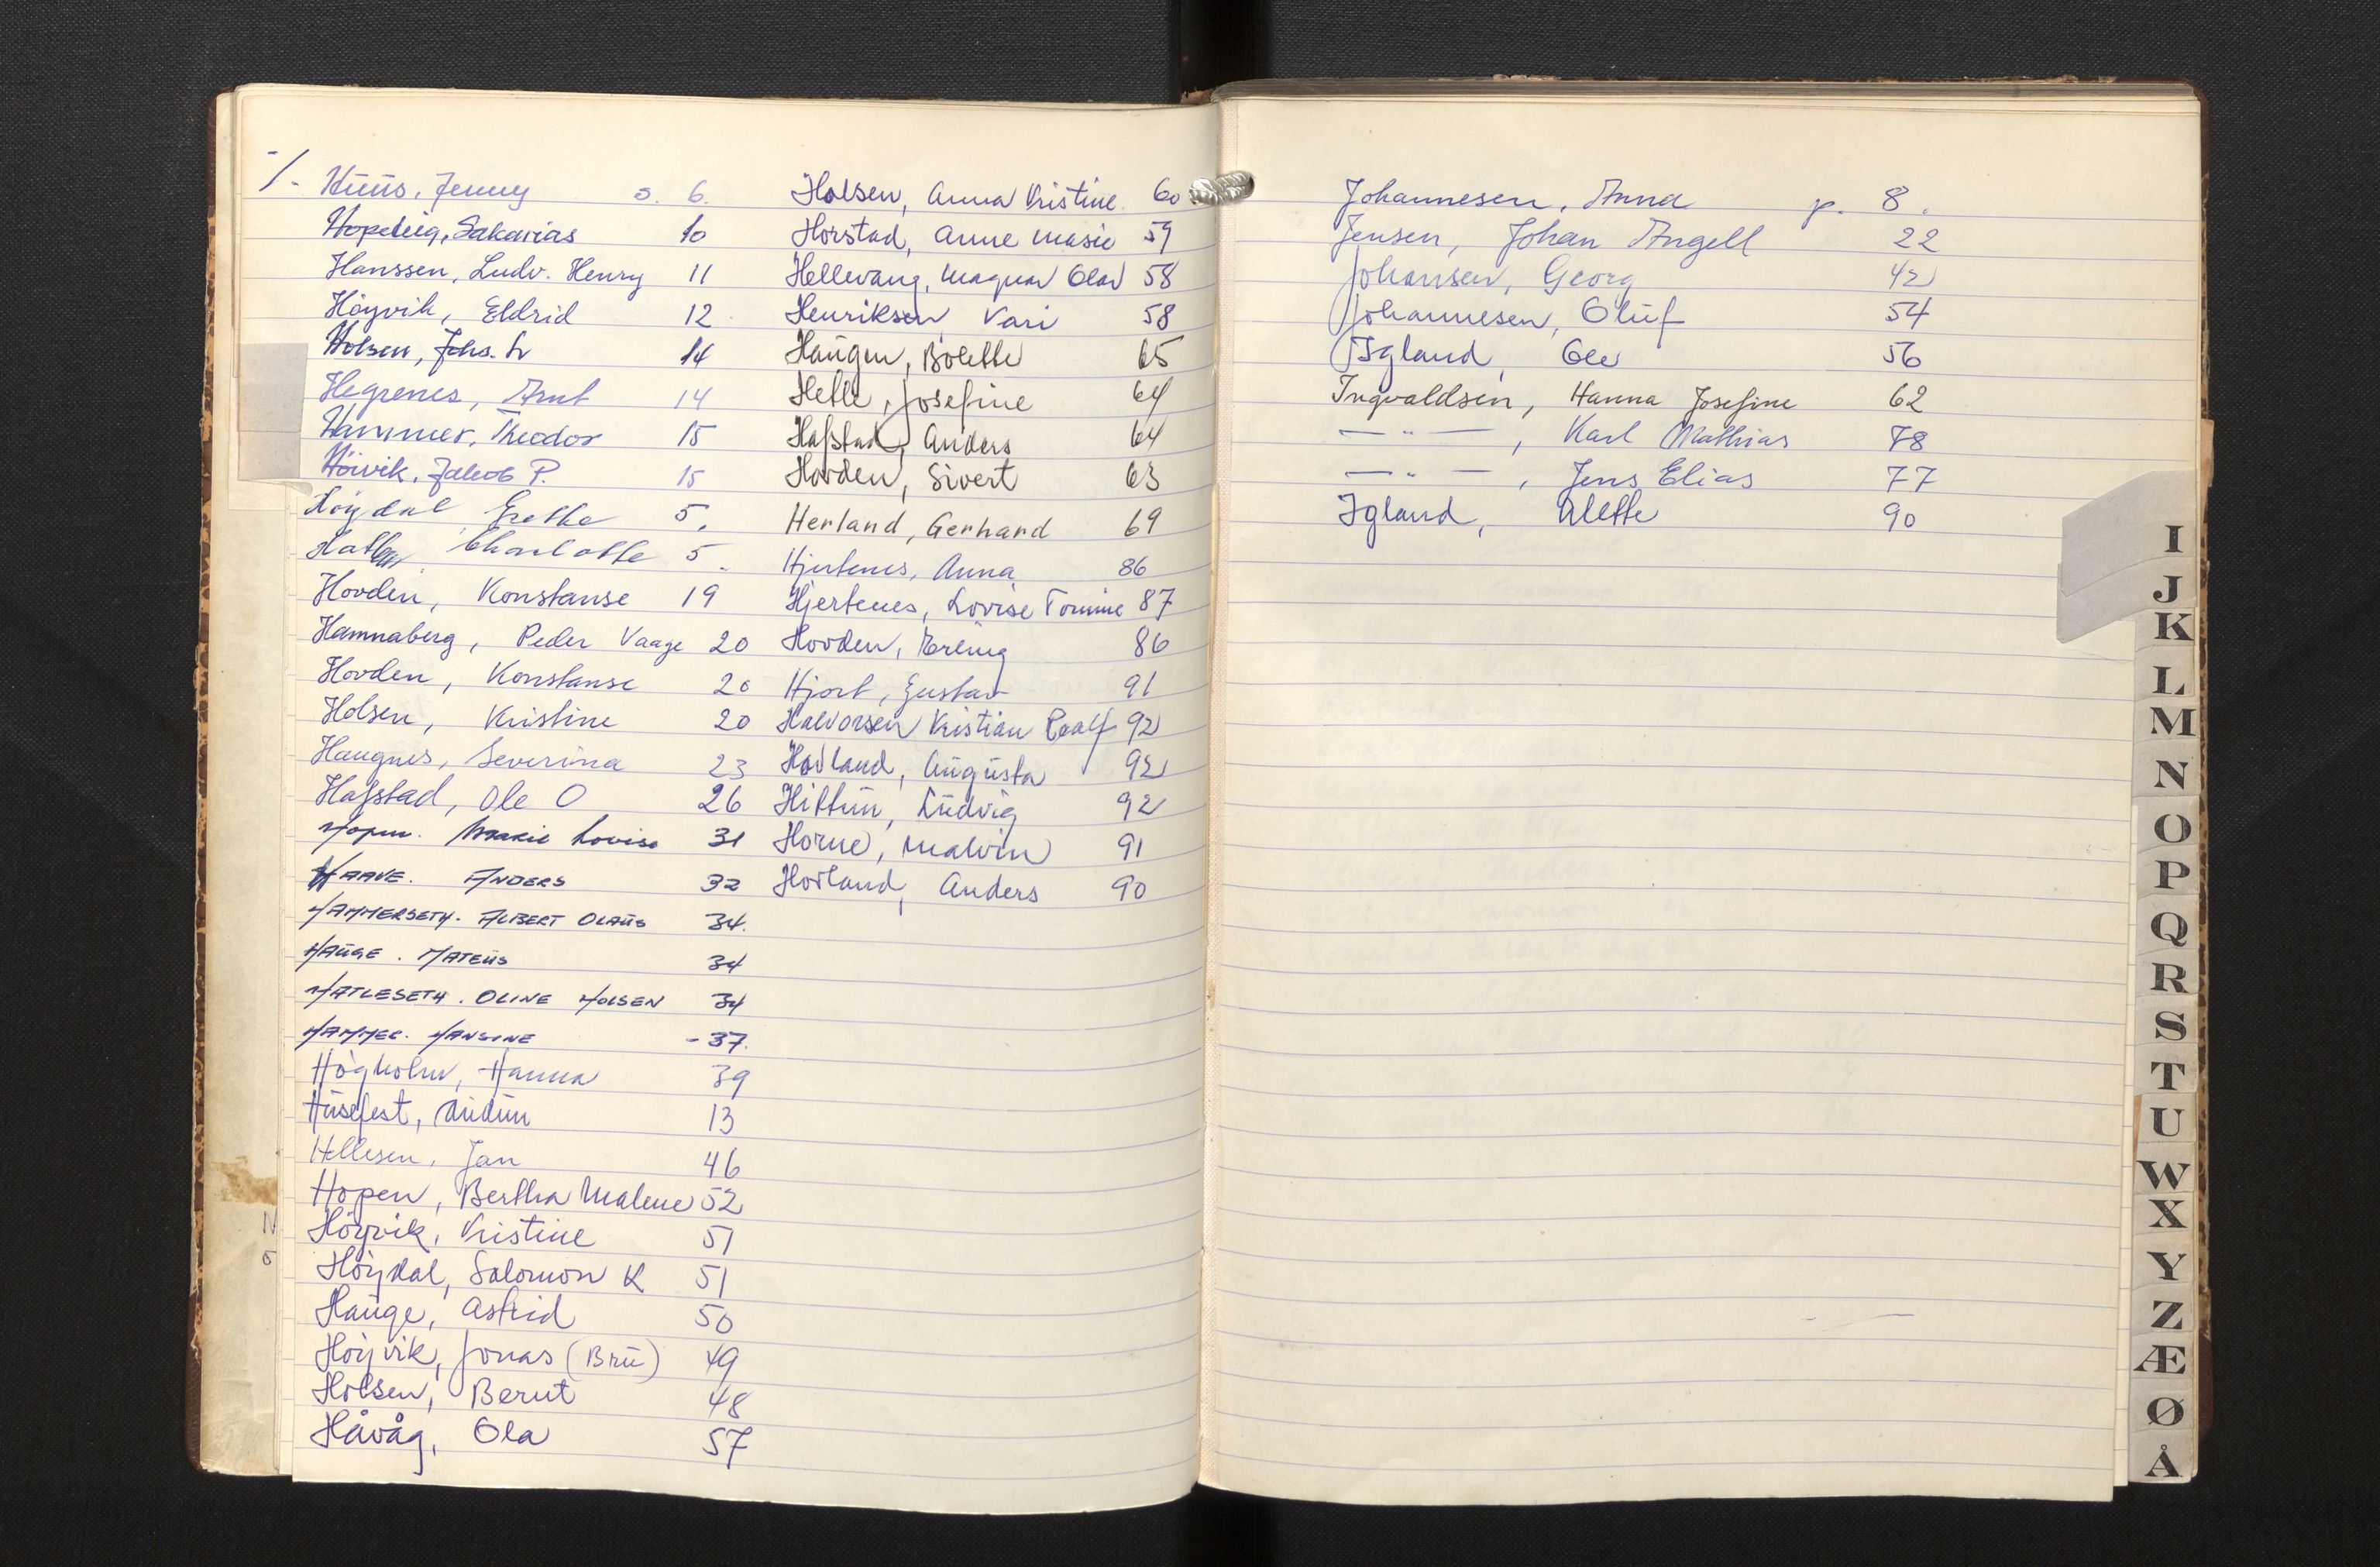 Huus, Jenny s. 6.
Hopeteig, Sakarias 10
Hanssen, Ludv. Henry 11
Höyvik, Eldrid 12
Holsen, Johs. Sr 14
Hegrenes, Arnt 14
Hammer, Theodor 15
Höivik, Jakob P. 15
Höydal Grethe 5.
Charlotte 5.
Hovden, Konstanse 19
Hamnaberg, Peder Vaage 20
Hovden, Konstanse 20
Holsen, Kristine 20
Haugnes, Severina 23
Hafstad, Ole O 26
Hopen. Marie Lovise 31
HAAVE. ANDERS 32
HAMMERSETH. ALBERT OLAŪS 34.
HAŪGE. MATEŪS 34
HATLESETH. OLINE HOLSEN 34
HAMMER. HANSINE -37.
Högholm, Hanna 39
Hūsefest, Aūdūn 13
Hellesen, Jan 46
Hopen, Bertha Malene 52
Höyvik, Kristine 51
Höydal, Salomon K 51
Haūge, Astrid 50
Höyvik, Jonas (Brū) 49
Holsen, Bernt 48
Håvåg, Ola 57
Holsen, Anna Kristine 60
Horstad, Anne Marie 59
Hellevang, Magnar Olav 58
Henriksen, Kari 58
Haūgen, Bolette 65
Helle, Josefine 64
Hafstad, Anders 64
Hovden, Sivert 63
Herland, Gerhard 69
Hjertenes, Anna 86
Hjertenes, Lovise Tomine 87
Hovden, 86
Hjort, Gustav 91
Halvorsen Kristian Roalf 92
Hovland, Aūgūsta 92
Hittūn, Lūdvig 92
Horne, Malvin 91
Hovland, Anders 90
Johannesen, Anna p. 8.
Jensen, Johan Angell 22
Johansen, Georg 42
Johannesen, Olūf 54
Igland, Ole 56
Ingvaldsen, Hanna Josefine 62
— " —, Karl Mathias 78
— " —, Jens Elias 77
Igland, Alette 90
I
J
K
L
M
N
O
P
Q
R
S
T
U
W
X
Y
Z
Æ
Ø
Å